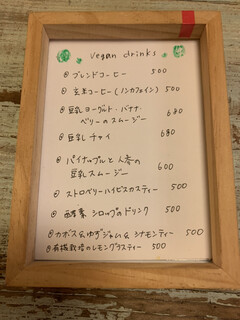 vegan drinks
◎ ブレンドコーヒー 500
◎ 玄米コーヒー(ノンカフェイン) 500
◎ 豆乳ヨーグルト・バナナ・
ベリーのスムージー 680
◎ 豆乳チャイ 680
◎ パイナップルと人参の
豆乳スムージー 600
◎ ストロベリーハイビスカスティー 500
◎ 酵素シロップのドリンク 500
◎ カボス&ゆずジャム&シナモンティー 500
◎ 有機栽培のレモングラスティー 500